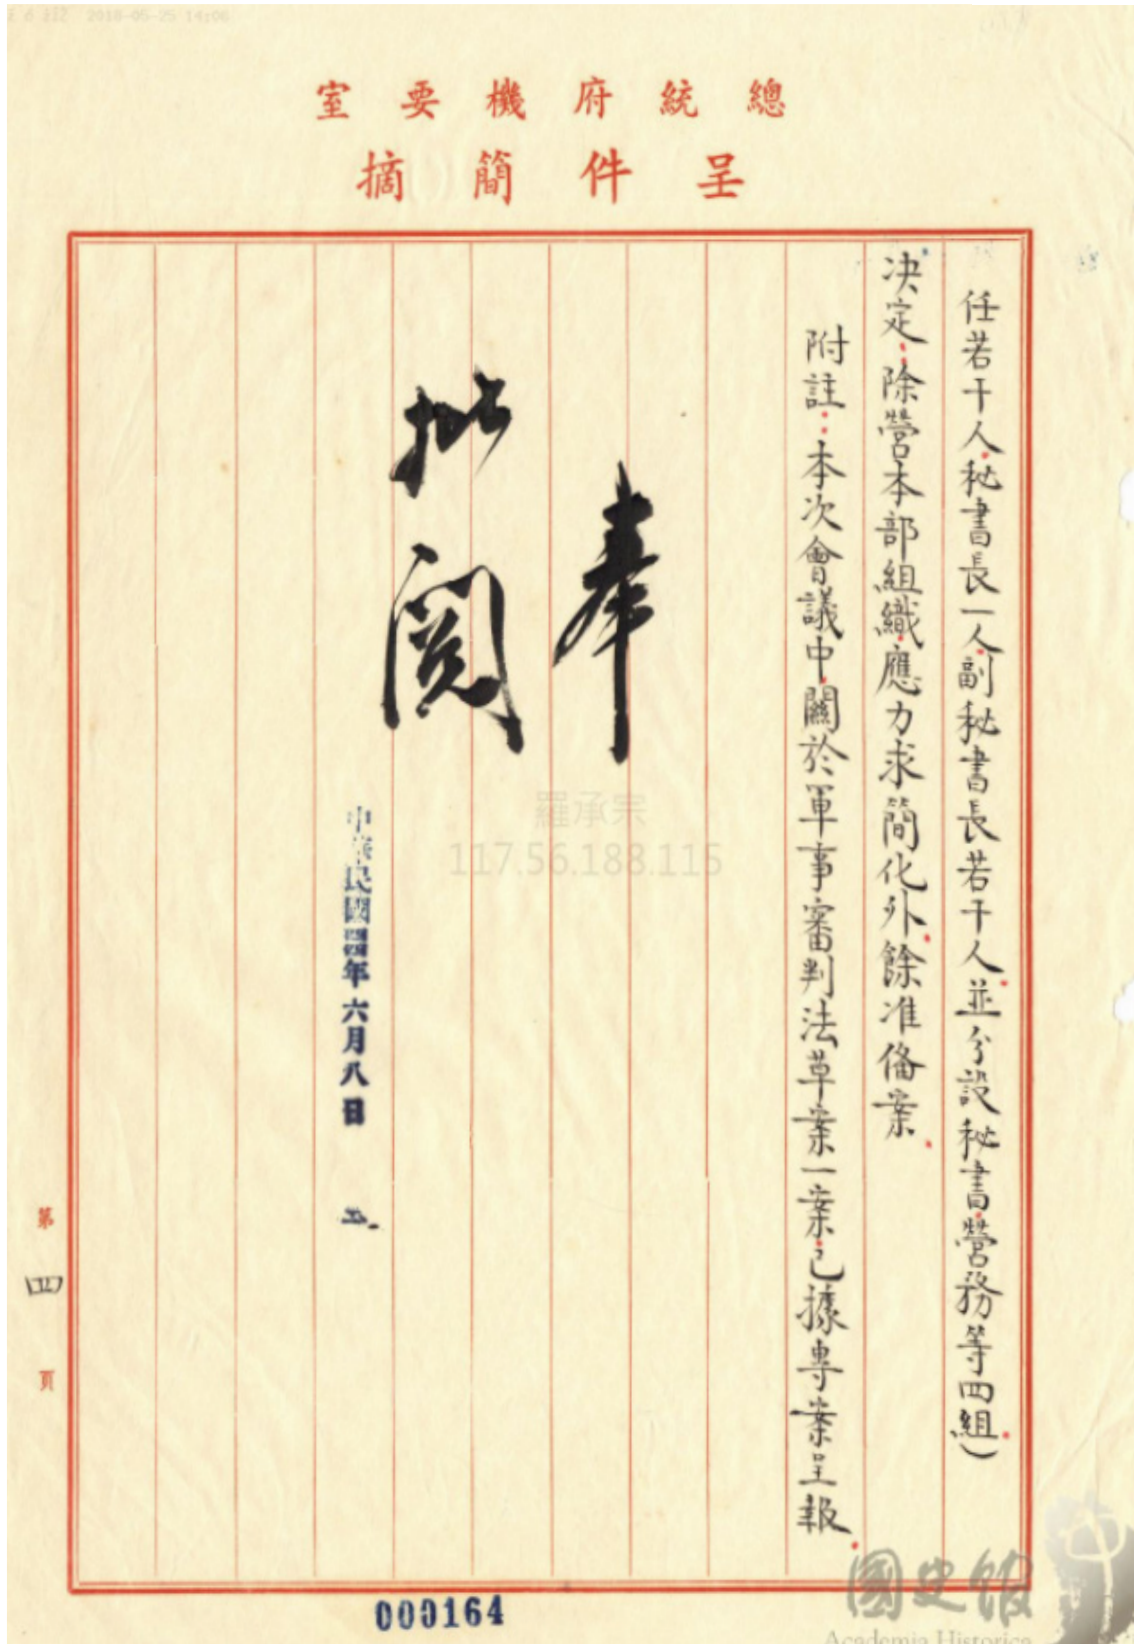 2018-05-25 14:06
總統府機要室
呈件簡摘
任若干人秘書長一人副秘書長若干人並分設秘書營務等四組)
決定：除營本部組織應力求簡化外餘准備案
附註：本次會議中關於軍事審判法草案一案已據專案呈報
奉
批閱
中華民國四四年六月八日
第四頁
羅承宗
117.56.188.115
000164
國史館
Academia Historica